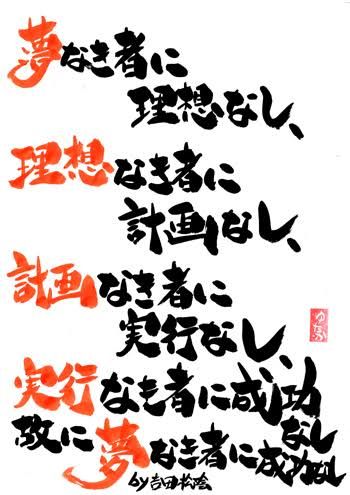 夢なき者に
理想なし、
理想なき者に
計画なし、
計画なき者に
実行なし、
実行なき者に成功
なし
故に夢なき者に成功なし
by吉田松陰